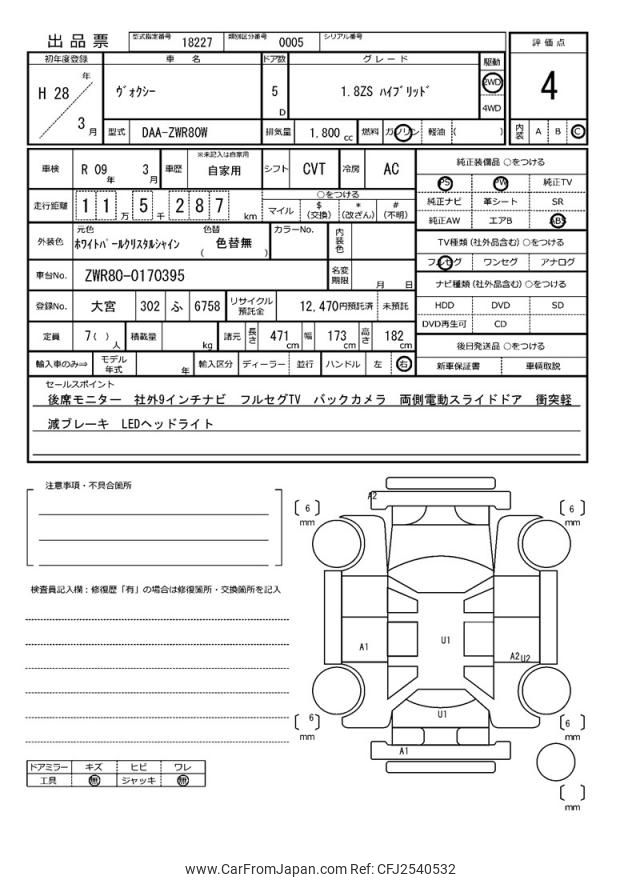 出品票 型式指定番号 18227 類別区分番号 0005 シリアル番号
初年度登録 車 名 ドア数 グレード 駆動 評価点
H 28 年 3 月 ヴォクシー 5 D 1.8ZS ハイブリッド 2WD 4WD 4
型式 DAA-ZWR80W 排気量 1,800 cc 燃料 ガソリン 軽油 ( ) 内装 A B C
車検 R 09 年 3 月 車歴 ※未記入は自家用 自家用 シフト CVT 冷房 AC 純正装備品 ○をつける
PS PW 純正TV
走行距離 1 1 万 5 千 2 8 7 km ○をつける
マイル $ (交換) * (改ざん) # (不明)
純正ナビ 革シート SR
純正AW エアB ABS
外装色 元色 ホワイトパールクリスタルシャイン 色替 ( 色替無 ) カラーNo. 内装色
TV種類 (社外品含む) ○をつける
フルセグ ワンセグ アナログ
車台No. ZWR80-0170395 名変期限 月 日
ナビ種類 (社外品含む) ○をつける
登録No. 大宮 302 ふ 6758 リサイクル預託金 12,470円預託済 未預託
HDD DVD SD
DVD再生可 CD
定員 7( ) 人 積載量 kg 諸元 長さ 471 cm 幅 173 cm 高さ 182 cm
後日発送品 ○をつける
輸入車のみ⇒ モデル年式 年 輸入区分 ディーラー 並行 ハンドル 左 右
新車保証書 車輌取説
セールスポイント
後席モニター 社外9インチナビ フルセグTV バックカメラ 両側電動スライドドア 衝突軽
減ブレーキ LEDヘッドライト
注意事項・不具合箇所
検査員記入欄:修復歴「有」の場合は修復箇所・交換箇所を記入
A2
6 mm
6 mm
A1
U1
A2 U2
U1
A1
6 mm
6 mm
mm
ドアミラー キズ ヒビ ワレ
工具 無 ジャッキ 無
www.CarFromJapan.com Ref: CFJ2540532